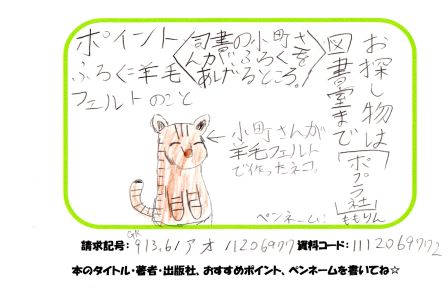 お探し物は
図書室まで
[ポプラ社]
ペンネーム:ももりん
ポイント
司書の小町さ
んがふろくを
あげるところ。
ふろく=羊毛
フェルトのこと
←小町さんが
羊毛フェルト
で作ったネコ。
請求記号: 913.61 アオ 112069772 資料コード: 1112069772
本のタイトル・著者・出版社、おすすめポイント、ペンネームを書いてね☆